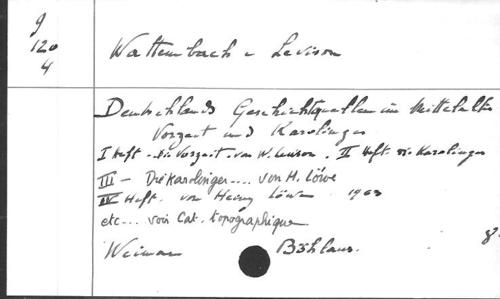 g
120
4
Wattenbach u Levison
Deutschlands Geschichtsquellen im Mittelalter
Vorzeit und Karolinger
I Heft - die Vorzeit - von W. Levison . II Heft. die Karolinger
III - Die Karolinger ... von H. Löwe
IV Heft . von Heinz Löwe 1963
etc ... voir Cat. topographique
Weimar Böhlaus. 8°